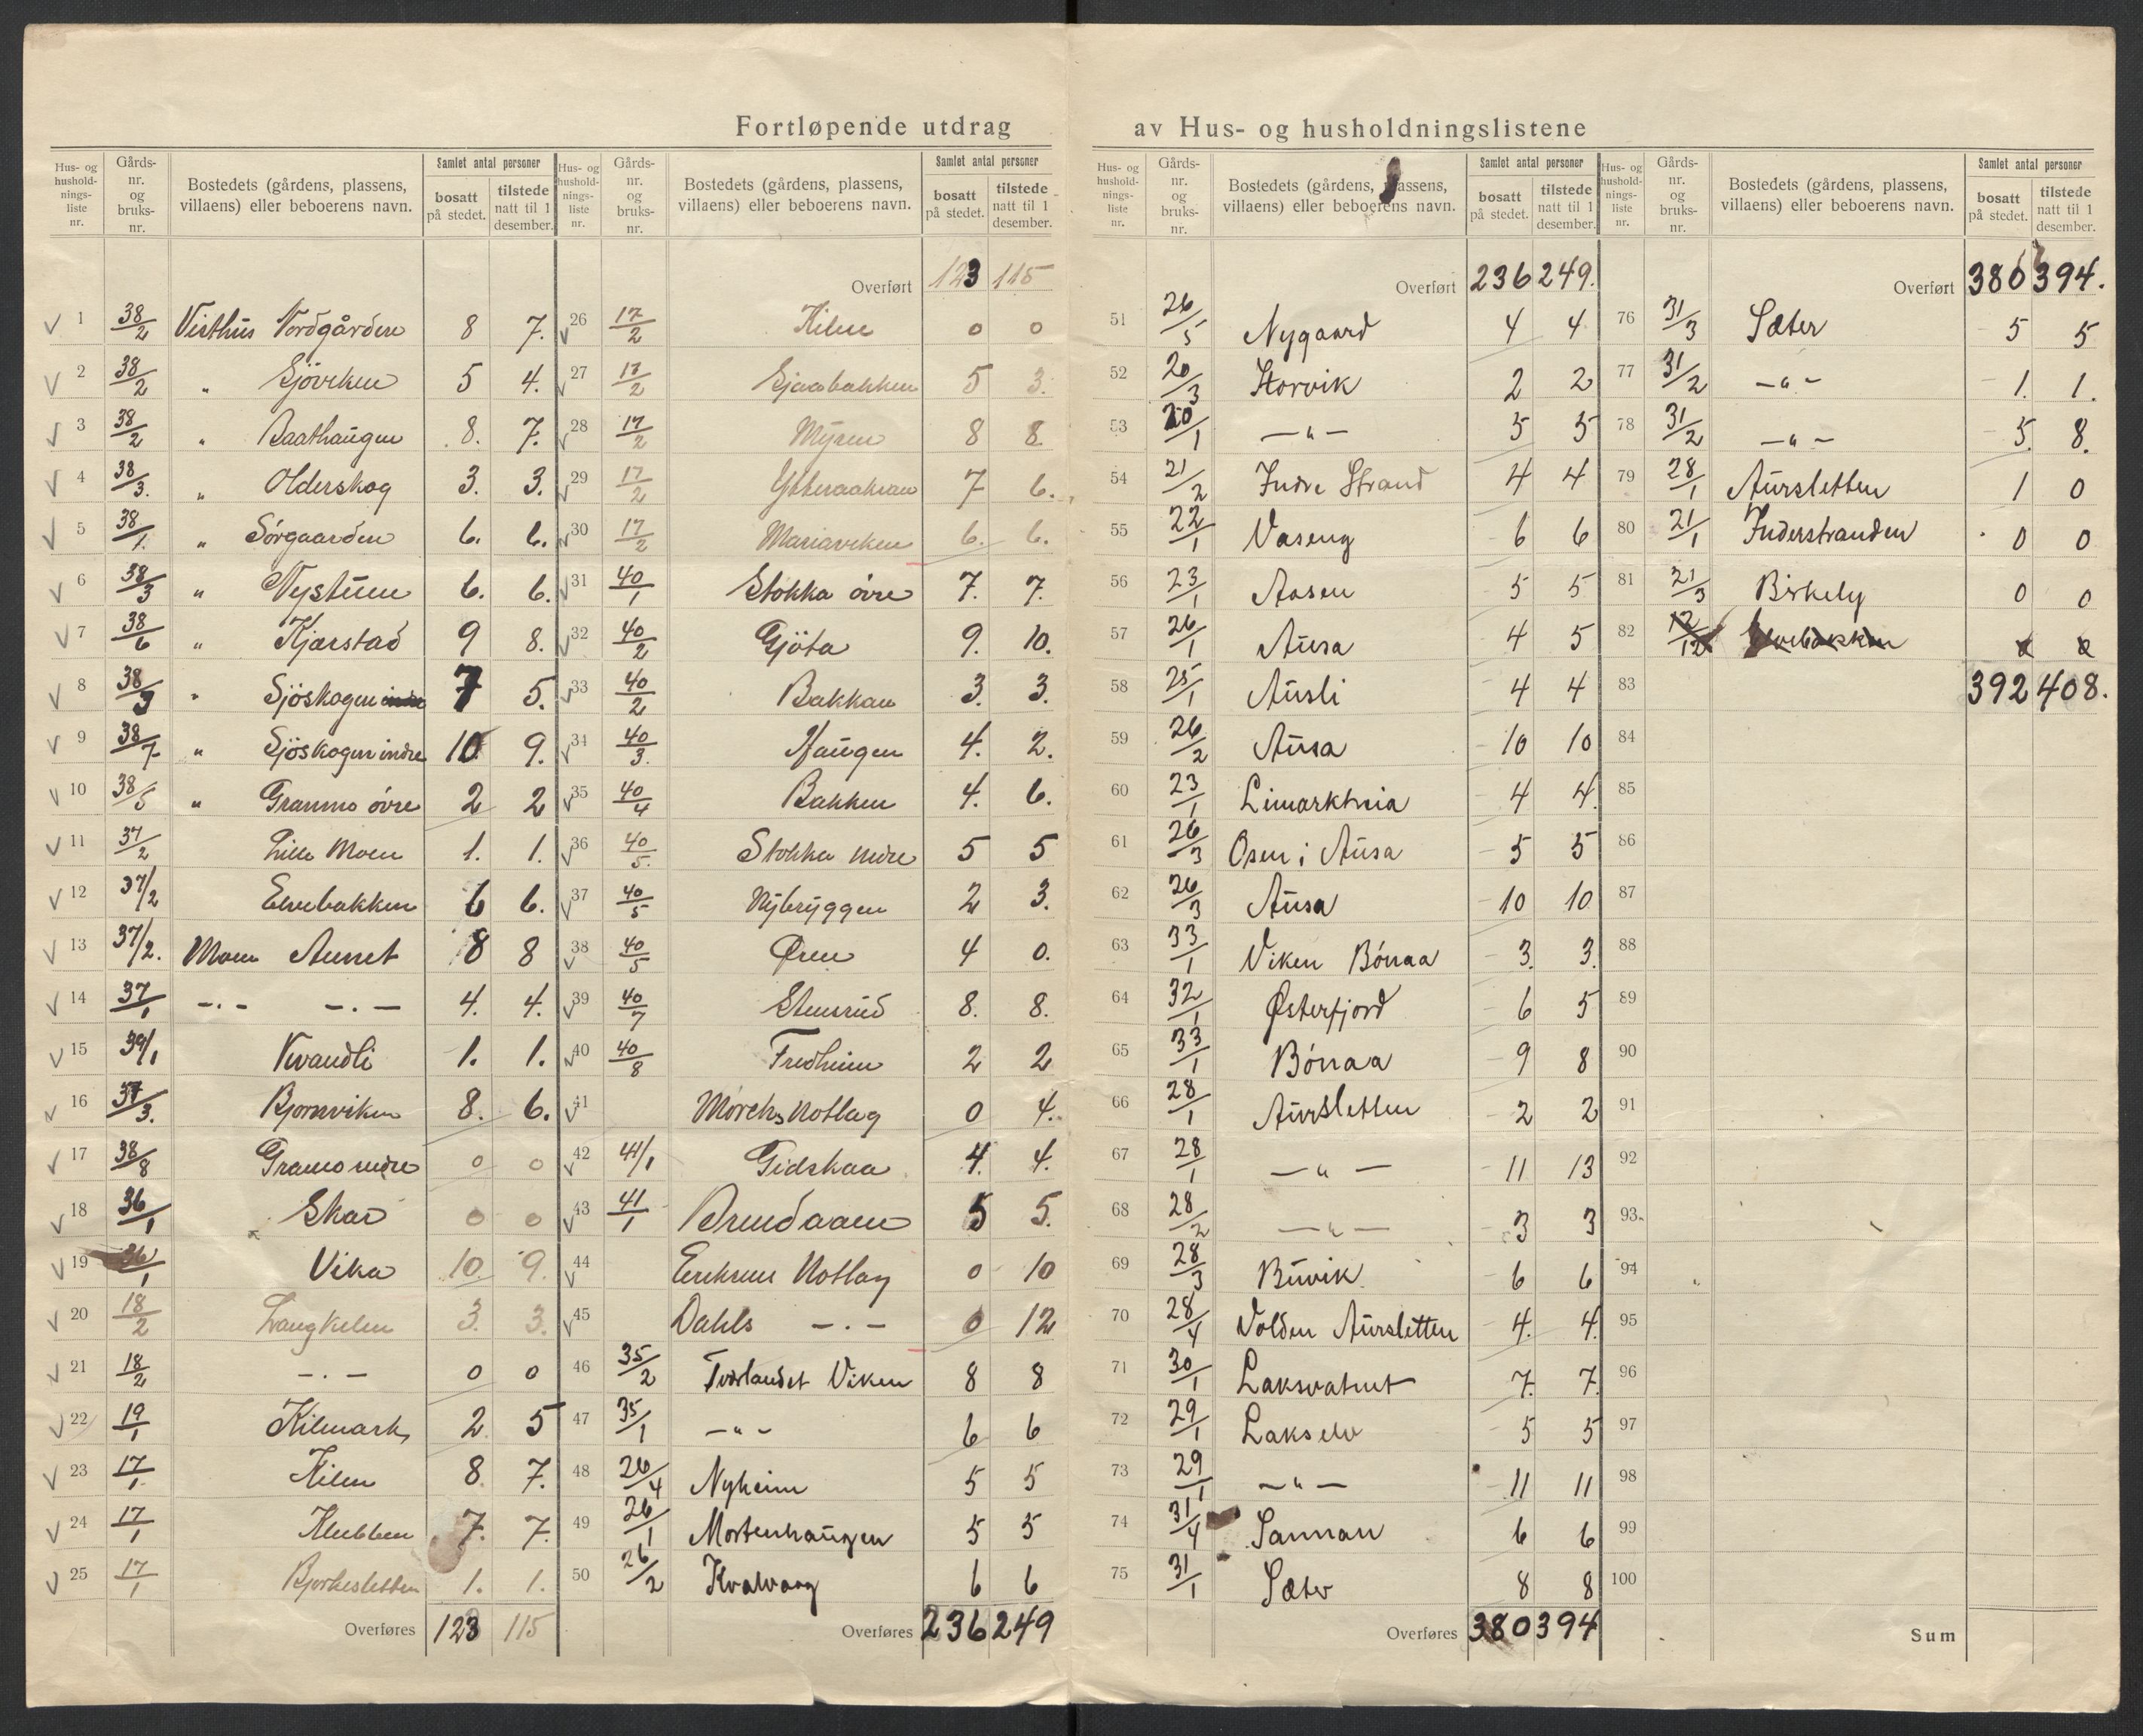 Fortløpende utdrag av Hus- og husholdningslistene
Hus- og husholdnings-liste nr. | Gårds-nr. og bruks-nr. | Bostedets (gårdens, plassens, villaens) eller beboerens navn. | Samlet antal personer bosatt på stedet. | tilstede natt til 1 desember.
1 38/2 Visthus Nordgården 8 7.
2 38/2 " Sjöviken 5 4.
3 38/2 " Baathaugen 8. 7.
4 38/3. " Olderskog 3. 3.
5 38/1. " Sörgaarden 6. 6.
6 38/3 " Nystuen 6. 6.
7 38/6 " Kjærstad 9 8.
8 38/3 " Sjöskogen 7 5.
9 38/7 " Sjöskogen indre 10 9.
10 38/5 " Granmo övre 2 2
11 37/2 Lille Moen 1. 1.
12 37/2 Elvebakken 6 6.
13 37/2. Moen Aunet 8 8
14 37/1 -.- -.- 4. 4.
15 39/1 Kvandli 1. 1.
16 37/3. Bjørnviken 8. 6.
17 38/8 Gramo nedre 0 0
18 36/1 Skar 0 0
19 36/1 Vika 10. 9.
20 18/2 Langkilen 3. 3.
21 18/2 -.- 0 0
22 19/1 Kilmark 2 5
23 17/1. Kilen 8 7.
24 17/1 Klubben 7. 7.
25 17/1 Bjørkesletten 1. 1.
Overføres 123 115
Overført 123 115
26 17/2 Kilen 0 0
27 17/2 Sjaabakken 5 3.
28 17/2 Myren 8 8.
29 17/2 Ytteraakran 7 6.
30 17/2 Mariaviken 6. 6.
31 40/1 Stokka övre 7. 7.
32 40/2 Gjöta 9. 10.
33 40/2 Bakkan 3. 3.
34 40/3. Haugen 4. 2.
35 40/4 Bakken 4. 6.
36 40/5. Stokka nedre 5 5
37 40/5 Nybryggen 2 3.
38 40/5 Øren 4 0.
39 40/7 Stensrud 8. 8.
40 40/8 Fredheim 2 2
41 Mörchs Notlag 0 4.
42 41/1 Gidskaa 4. 4.
43 41/1 Brendaaen 5 5.
44 Eriksens Notlag 0 10
45 Dahls -.- 0 12
46 35/2 Tverlandet Viken 8 8
47 35/1 -"- 6 6
48 26/4 Nyheim 5 5
49 26/1 Mortenhaugen 5 5
50 26/2 Kvalvaag 6 6
Overføres 236 249
Overført 236 249.
51 26/5 Nygaard 4 4
52 20/3 Storvik 2 2
53 20/1 -"- 5 5
54 21/2 Indre Strand 4 4
55 22/1 Vaseng 6 6
56 23/1 Aasen 5 5
57 26/1 Ausa 4 5
58 25/1 Ausli 4 4
59 26/2 Ausa 10 10
60 23/1 Limarkheia 4 4.
61 26/3 Osen i Ausa 5 5
62 26/3 Ausa 10 10
63 33/1 Viken Bónaa 3. 3.
64 32/1 Østerfjord 6 5
65 33/1 Bónaa 9 8
66 28/1 Aursletten 2 2
67 28/1 -"- 11 13
68 28/2 -"- 3 3
69 28/3 Buvik 6 6
70 28/4 Volden Aursletten 4. 4.
71 30/1 Laksvatnet 7. 7.
72 29/1 Lakselv 5 5
73 29/1 -"- 11 11
74 31/4 Sannan 6 6
75 31/1 Sæter 8 8
Overføres 380 394
Overført 380 394.
76 31/3 Sæter 5 5
77 31/2 -"- 1. 1.
78 31/2 -"- 5. 8.
79 28/1 Aursletten 1 0
80 21/1 Inderstranden 0 0
81 21/3 Birkely 0 0
82
83 392 408.
84
85
86
87
88
89
90
91
92
93.
94
95
96
97
98
99
100
Sum